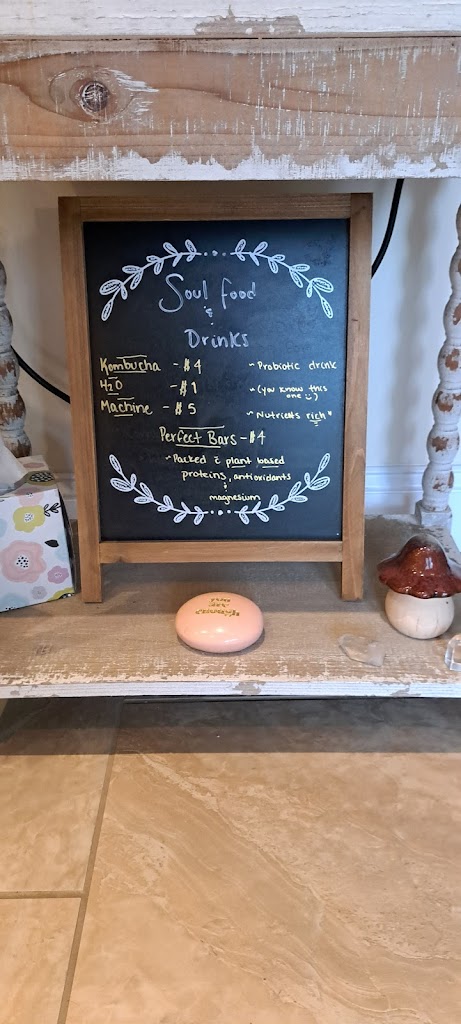 Soul food
&
Drinks
Kombucha - $4 ~ Probiotic drink
H2O - $1 ~ (you know this one ü)
Machine - $5 ~ Nutrients rich"
Perfect Bars - $4
~ Packed z plant based
proteins, antioxidants
&
magnesium
YOU ARE